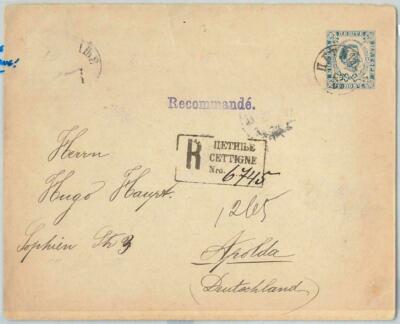 Recommandé.
R
ЦЕТИЊЕ
CETTIGNE
Nro. 6745
Herrn
Hugo Haupt.
1265
Sophien Str 3
Apolda
(Deutschland)